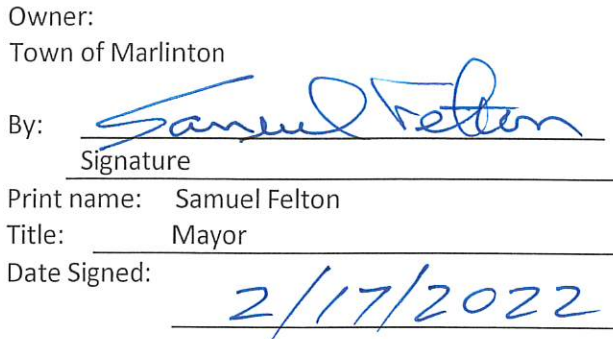 Owner:
Town of Marlinton
By: Samuel Felton
Signature
Print name: Samuel Felton
Title: Mayor
Date Signed: 2/17/2022